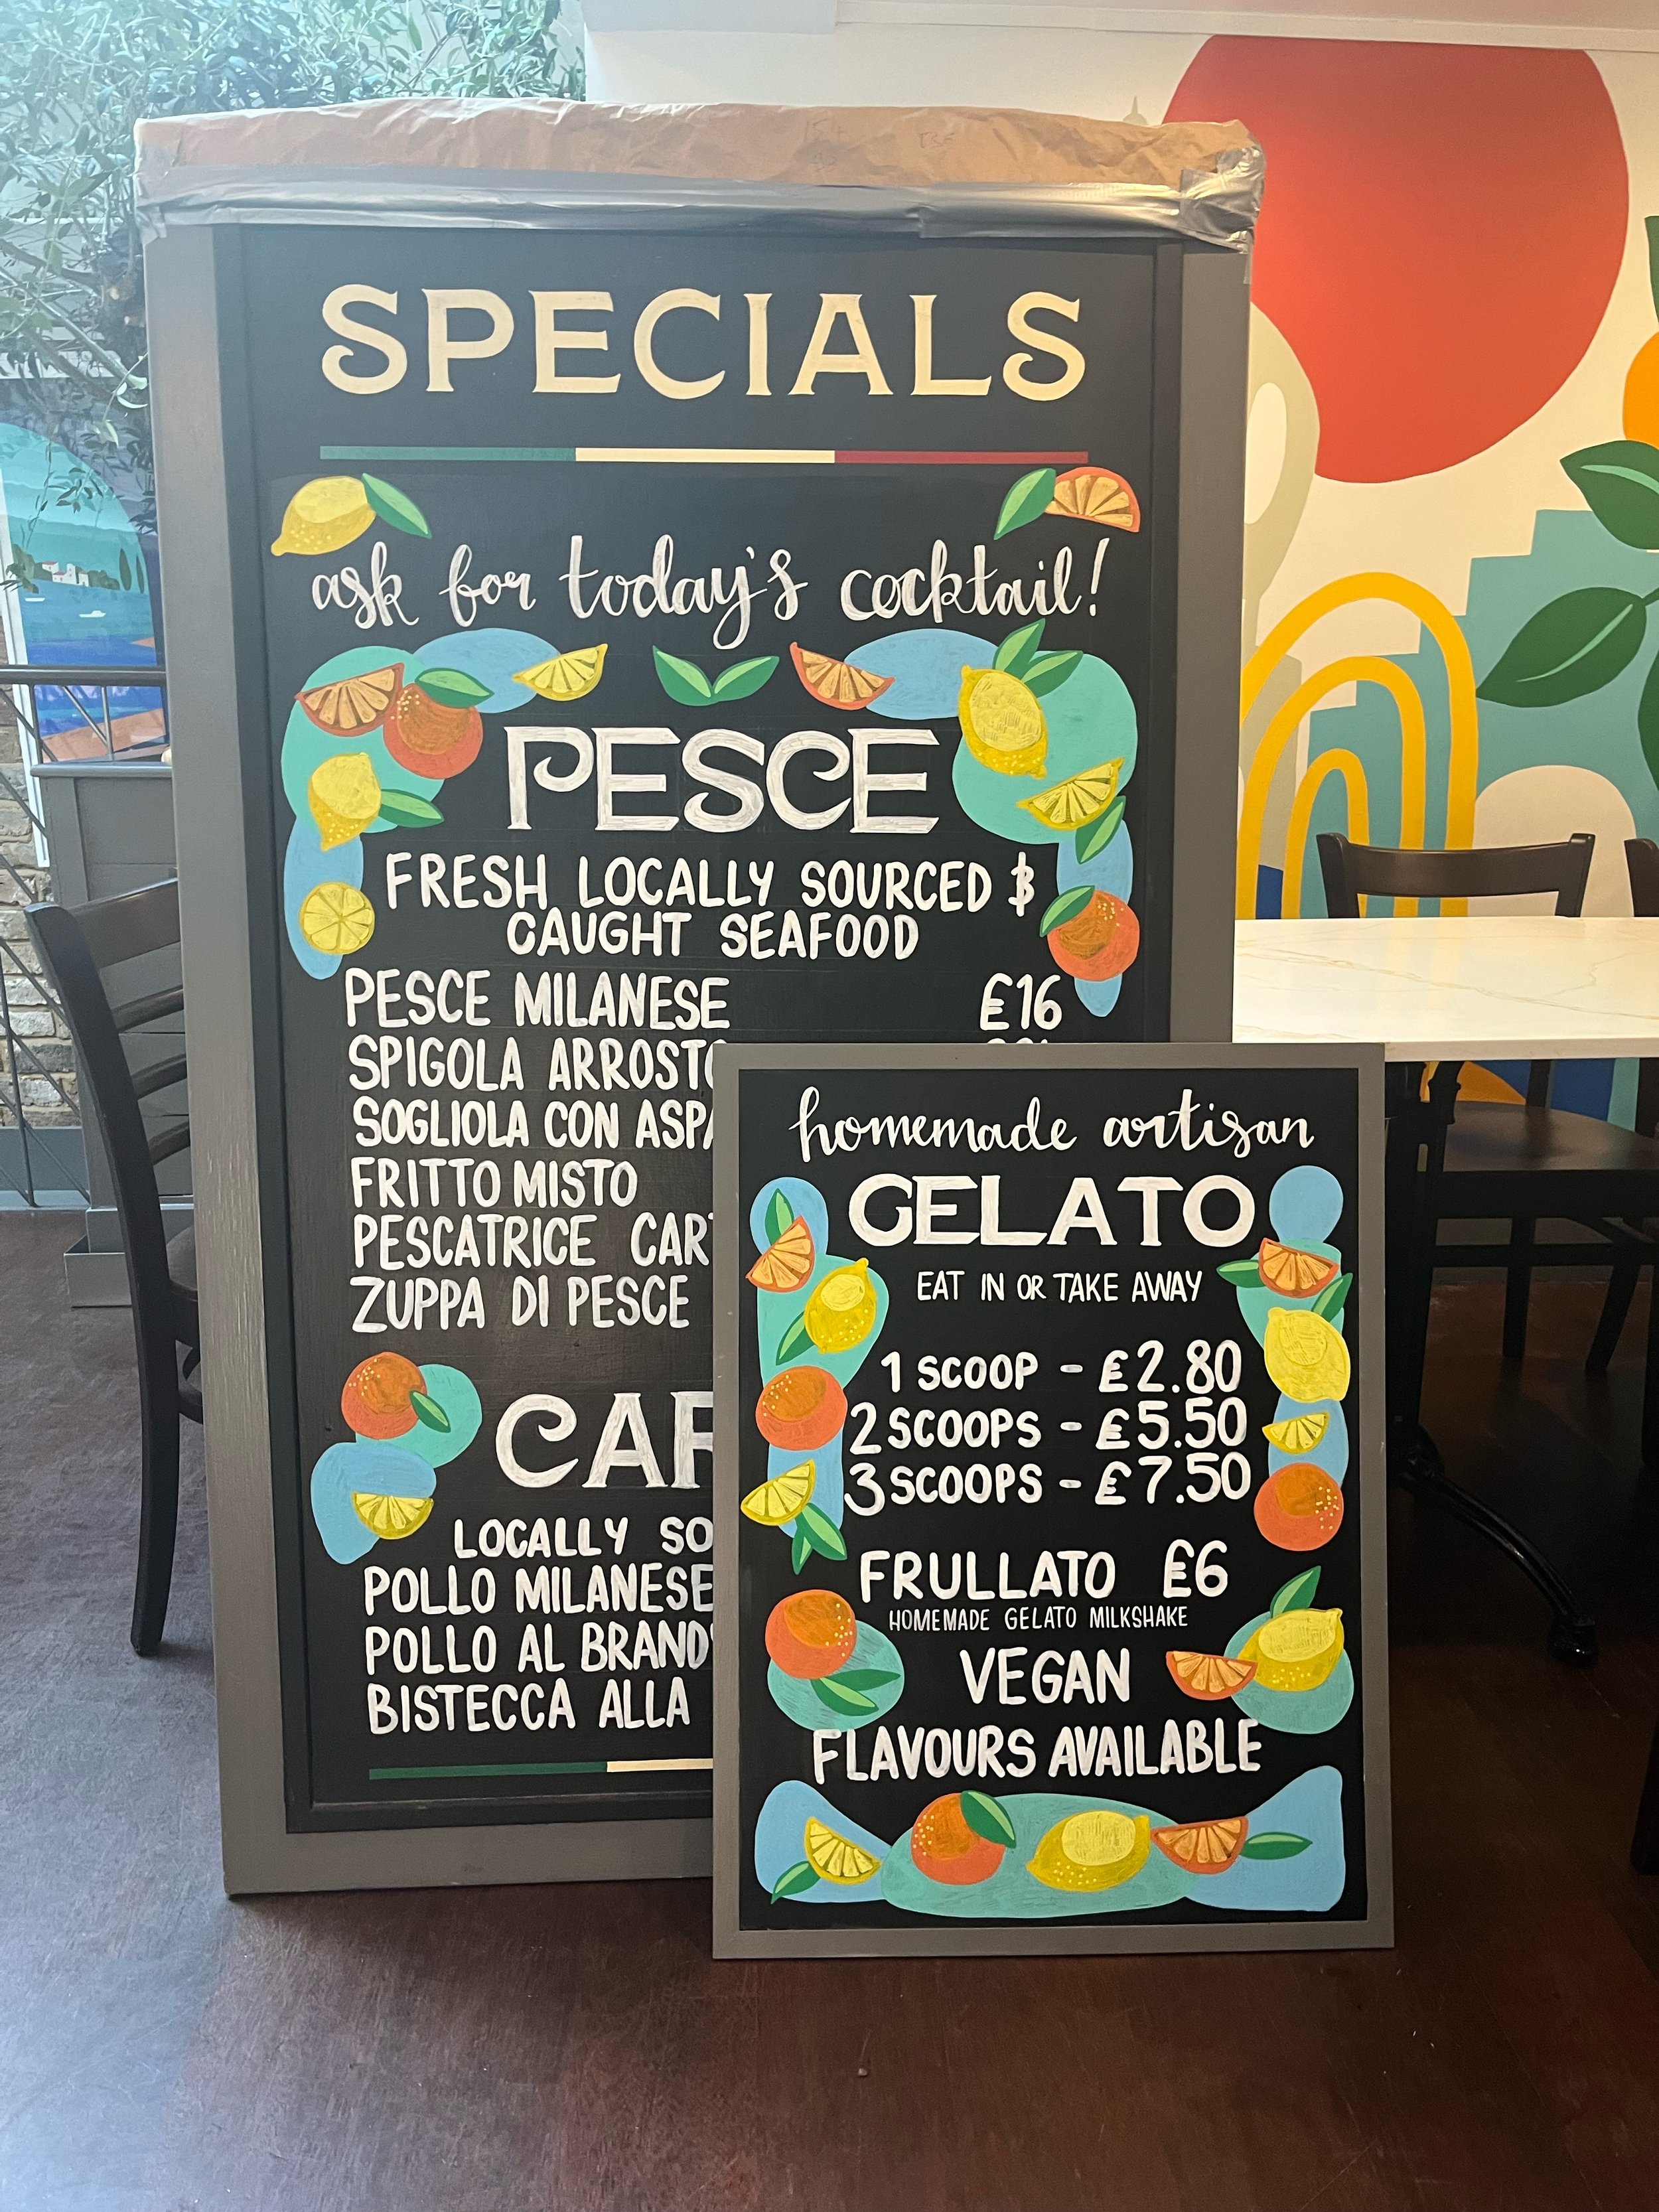 SPECIALS
ask for today's cocktail!
PESCE
FRESH LOCALLY SOURCED &
CAUGHT SEAFOOD
PESCE MILANESE £16
SPIGOLA ARROSTO
SOGLIOLA CON
FRITTO MISTO
PESCATRICE
ZUPPA DI PESCE
LOCALLY
POLLO MILANESE
POLLO AL
BISTECCA ALLA
homemade artisan
GELATO
EAT IN OR TAKE AWAY
1 SCOOP - £2.80
2 SCOOPS - £5.50
3 SCOOPS - £7.50
FRULLATO £6
HOMEMADE GELATO MILKSHAKE
VEGAN
FLAVOURS AVAILABLE